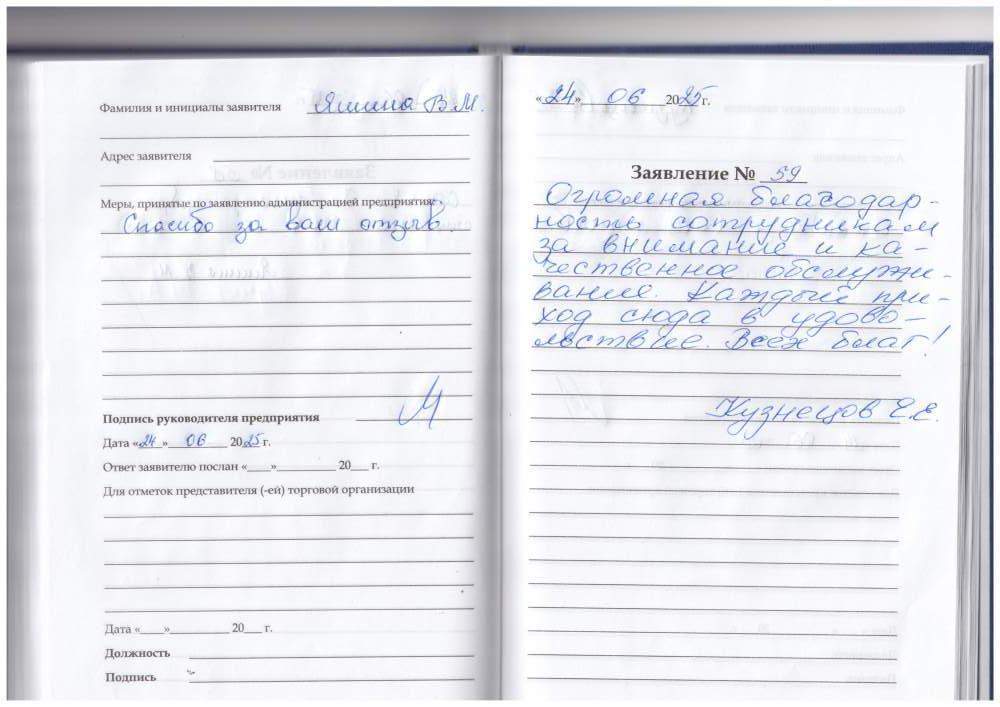 Фамилия и инициалы заявителя Яшина В.М.
Адрес заявителя
Меры, принятые по заявлению администрацией предприятия:
Спасибо за ваш отзыв
Подпись руководителя предприятия
Дата «24» 06 2025 г.
Ответ заявителю послан «____»__________ 20___ г.
Для отметок представителя (-ей) торговой организации
Дата «____»__________ 20___ г.
Должность
Подпись
«24» 06 2025 г.
Заявление № 59
Огромная благодар-
ность сотрудникам
за внимание и ка-
чественное обслужи-
вание. Каждый при-
ход сюда в удово-
льствие. Всех благ!
Кузнецов Е.Е.